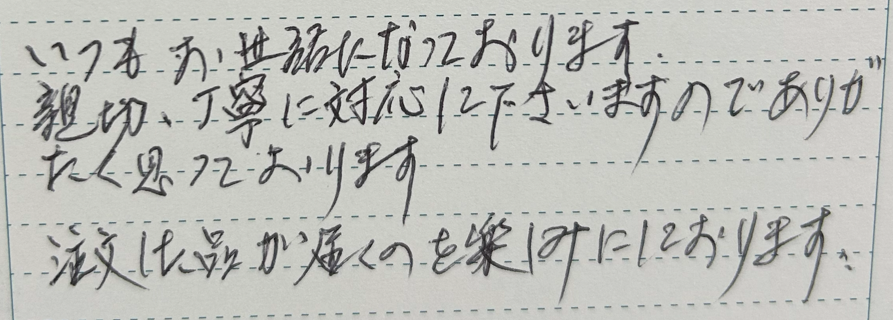 いつもお世話になっております.
親切、丁寧に対応して下さいますのでありが
たく思っております
注文した品が届くのを楽しみにしております.